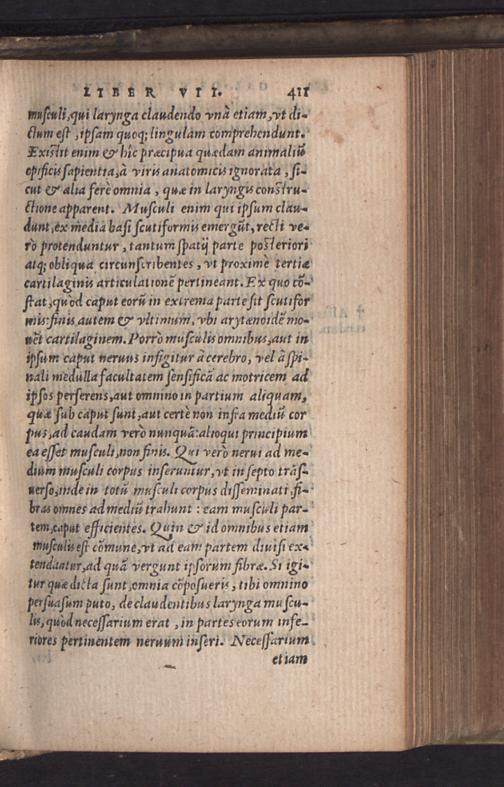 LIBER VII. 411
musculi, qui larynga claudendo vnà etiam, vt di-
ctum est, ipsam quoq; lingulam comprehendunt.
Existit enim & hîc præcipua quædam animaliũ
opificis sapientia, à viris anatomicis ignorata, si-
cut & alia ferè omnia, quæ in laryngis constru-
ctione apparent. Musculi enim qui ipsum clau-
dunt, ex media basi scutiformis emergũt, recti ve-
rò protenduntur, tantum spatij parte posteriori
atq; obliqua circunscribentes, vt proximè tertiæ
cartilaginis articulationẽ pertineant. Ex quo cõ-
stat, quòd caput eorũ in extrema parte sit scutifor
mis: finis autem & vltimum, vbi arytænoidẽ mo-
uẽt cartilaginem. Porrò musculis omnibus, aut in
ipsum caput neruus infigitur à cerebro, vel à spi-
nali medulla facultatem sensificã ac motricem ad
ipsos perferens, aut omnino in partium aliquam,
quæ sub caput sunt, aut certè non infra mediũ cor
pus, ad caudam verò nunquã: alioqui principium
ea esset musculi, non finis. Qui verò nerui ad me-
dium musculi corpus inseruntur, vt in septo trãs-
uerso, inde in totũ musculi corpus disseminati, fi-
bras omnes ad mediũ trahunt: eam musculi par-
tem, caput efficientes. Quin & id omnibus etiam
musculis est cõmune, vt ad eam partem diuisi ex-
tendãtur, ad quã vergunt ipsorum fibræ. Si igi-
tur quæ dicta sunt, omnia cõposueris, tibi omnino
persuasum puto, de claudentibus larynga muscu-
lis, quòd necessarium erat, in partes eorum infe-
riores pertinentem neruum inseri. Necessarium
etiam